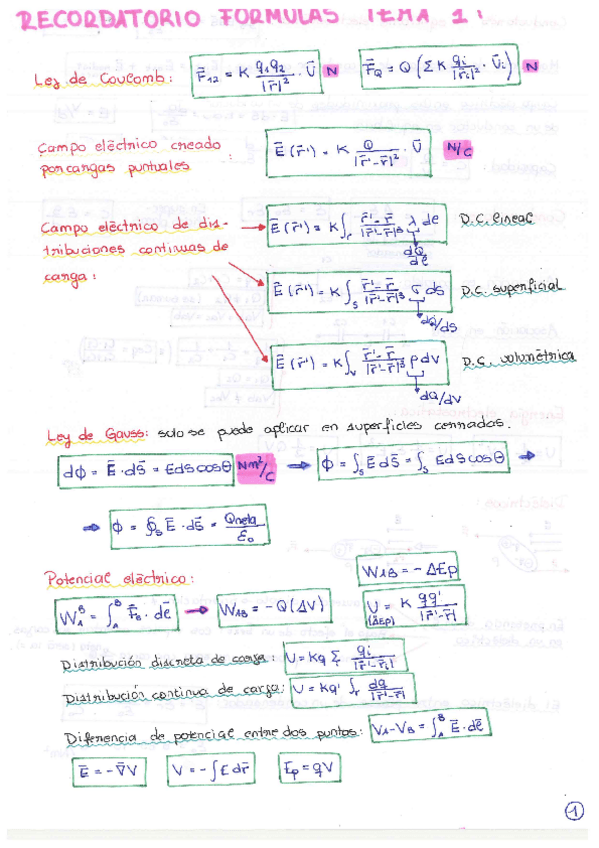 RECORDATORIO FORMULAS TEMA 1:
Ley de Coulomb: F̄₁₂ = K q₁q₂/|r̄|² · Ū N F̄_Q = Q (Σ K qᵢ/|r̄ᵢ|² · Ūᵢ) N
Campo eléctrico creado
por cargas puntuales : Ē (r̄') = K Q/|r̄'-r̄|² · Ū N/C
Campo eléctrico de dis-
tribuciones continuas de
carga:
Ē (r̄') = K ∫_r (r̄'-r̄)/|r̄'-r̄|³ λ dl D.C. lineal
dQ/dl
Ē (r̄') = K ∫_S (r̄'-r̄)/|r̄'-r̄|³ σ ds D.C. superficial
dQ/ds
Ē (r̄') = K ∫_V (r̄'-r̄)/|r̄'-r̄|³ ρ dv D.C. volumétrica
dQ/dV
Ley de Gauss: solo se puede aplicar en superficies cerradas.
dΦ = Ē · dS̄ = E dS cosθ Nm²/C → Φ = ∫_S Ē dS̄ = ∫_S E dS cosθ →
→ Φ = ∮_S Ē · dS̄ = Qneta/ε₀
Potencial eléctrico: W_AB = -ΔEp
W_A^B = ∫_A^B F̄ · dl̄ → W_AB = -Q(ΔV) U = K qq'/|r̄'-r̄|
(ΔEp)
Distribución discreta de carga: U = Kq Σ qᵢ/|r̄'-r̄ᵢ|
Distribución continua de carga: U = Kq' ∫_r dq/|r̄'-r̄|
Diferencia de potencial entre dos puntos: V_A-V_B = ∫_A^B Ē · dl̄
Ē = -∇̄V V = -∫E dr̄ Ep = qV
1